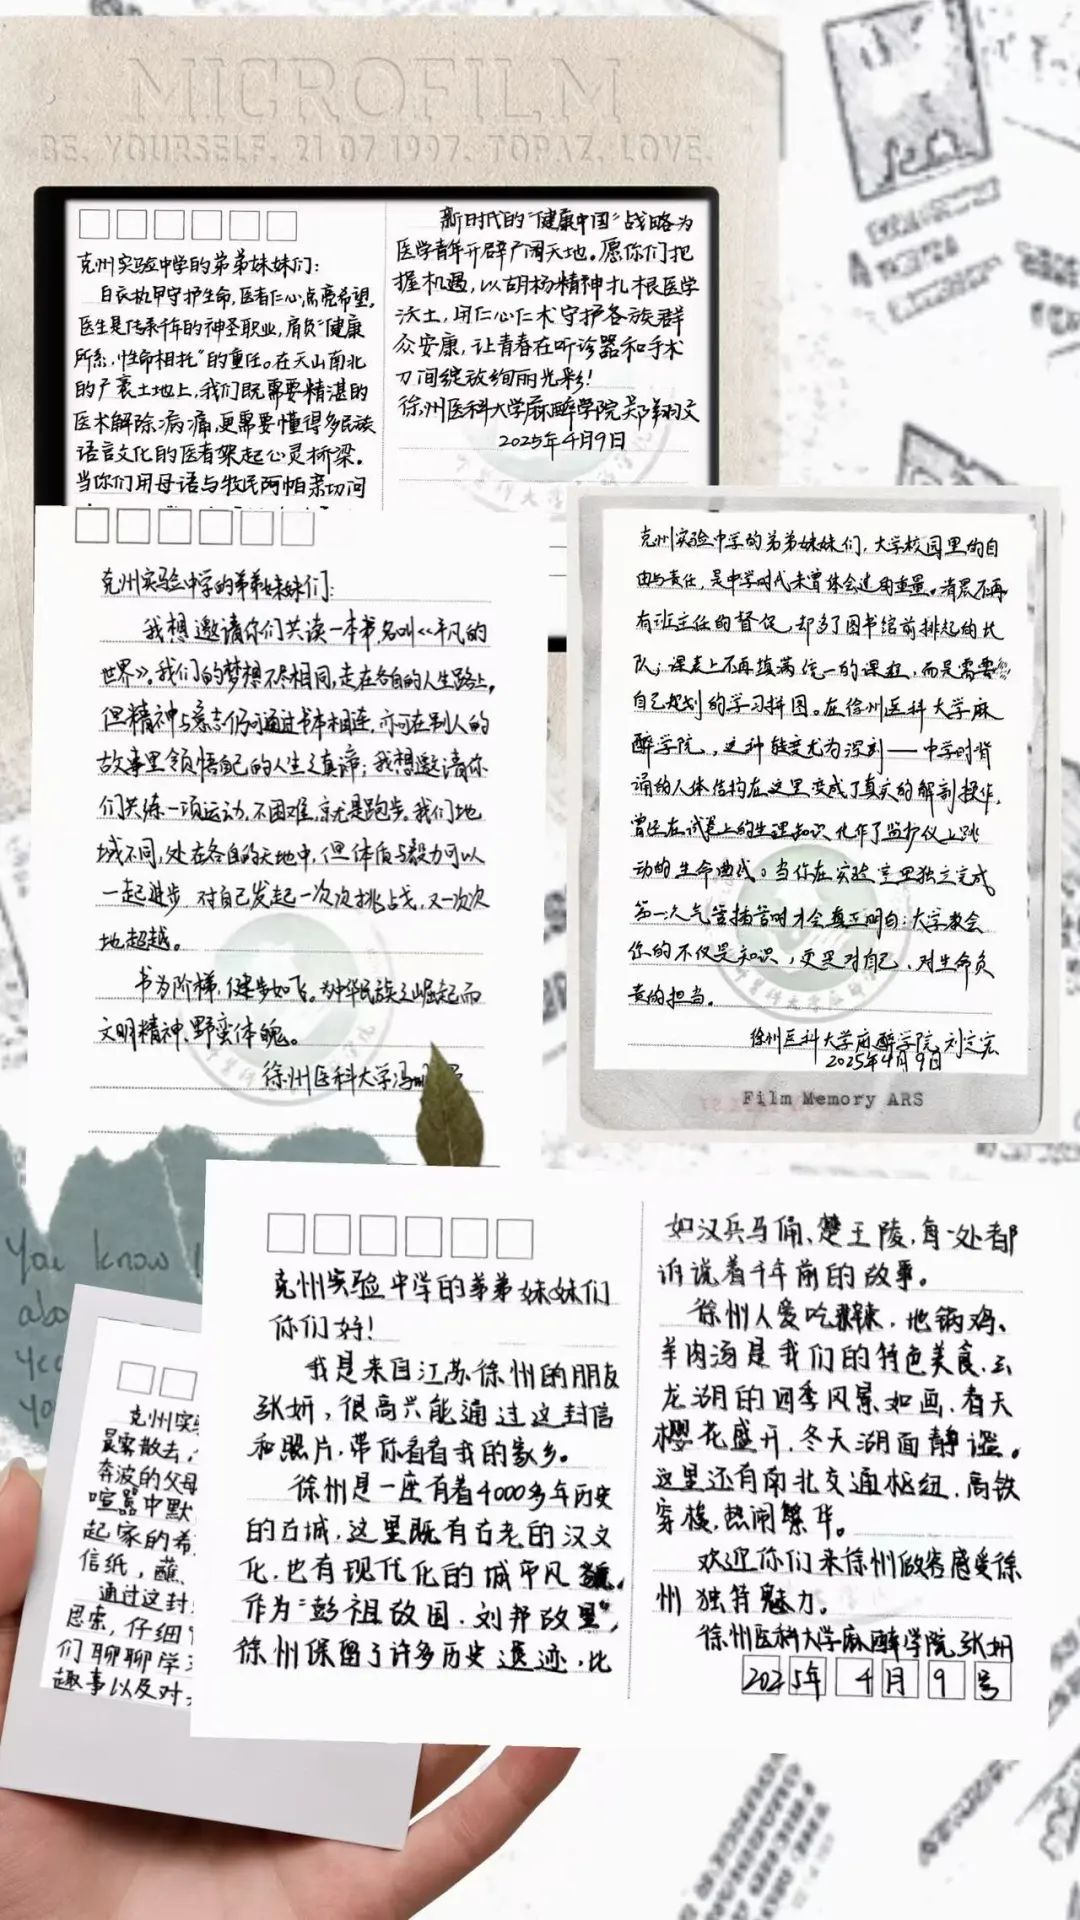 MICROFILM
BE. YOURSELF. 21 07 1997. TOPAZ. LOVE.
克州实验中学的弟弟妹妹们：
白衣执甲守护生命，医者仁心点亮希望。
医生是传承千年的神圣职业，肩负“健康
所系，性命相托”的重任。在天山南北
的广袤土地上，我们既需要精湛的
医术解除病痛，更需要懂得多民族
语言文化的医者架起心灵桥梁。
当你们用母语与牧民阿帕亲切问
新时代的“健康中国”战略为
医学青年开辟广阔天地。愿你们把
握机遇，以胡杨精神扎根医学
沃土，用仁心仁术守护各族群
众安康，让青春在听诊器和手术
刀间绽放绚丽光彩！
徐州医科大学麻醉学院
2025年4月9日
克州实验中学的弟弟妹妹们：
我想邀请你们共读一本书名叫《平凡的
世界》。我们的梦想不尽相同，走在各自的人生路上，
但精神与意志仍可通过书本相连，亦可在别人的
故事里领悟自己的人生之真谛；我想邀请你
们共练一项运动，不困难，就是跑步。我们地
域不同，处在各自的天地中，但体质与毅力可以
一起进步，对自己发起一次次挑战，又一次次
地超越。
书为阶梯，健步如飞。为中华民族之崛起而
文明精神、野蛮体魄。
徐州医科大学冯
克州实验中学的弟弟妹妹们，大学校园里的自
由与责任，是中学时代未曾体会过的重量。清晨不再
有班主任的督促，却多了图书馆前排起的长
队；课表上不再填满统一的课程，而是需要
自己规划的学习拼图。在徐州医科大学麻
醉学院，这种转变尤为深刻——中学时背
诵的人体结构在这里变成了真实的解剖操作，
曾经在试卷上的生理知识化作了监护仪上跳
动的生命曲线。当你在实验室里独立完成
第一次气管插管时才会真正明白：大学教会
你的不仅是知识，更是对自己、对生命负
责的担当。
徐州医科大学麻醉学院 刘定宏
2025年4月9日
Film Memory ARS
克州实验中学的弟弟妹妹们
你们好！
我是来自江苏徐州的朋友
张妍，很高兴能通过这封信
和照片，带你看看我的家乡。
徐州是一座有着4000多年历史
的古城，这里既有古老的汉文
化，也有现代化的城市风貌。
作为“彭祖故国、刘邦故里”，
徐州保留了许多历史遗迹，比
如汉兵马俑、楚王陵，每一处都
诉说着千年前的故事。
徐州人爱吃辣，地锅鸡、
羊肉汤是我们的特色美食，云
龙湖的四季风景如画，春天
樱花盛开，冬天湖面静谧。
这里还有南北交通枢纽，高铁
穿梭，热闹繁华。
欢迎你们来徐州做客感受徐
州独特魅力。
徐州医科大学麻醉学院 张妍
2025年4月9号
You know
abo
You
yo
克州实
晨雾散去，
奔波的父母
喧嚣中默
起家的希
信纸，蘸
通过这封
思索，仔细
们聊聊学
趣事以及对